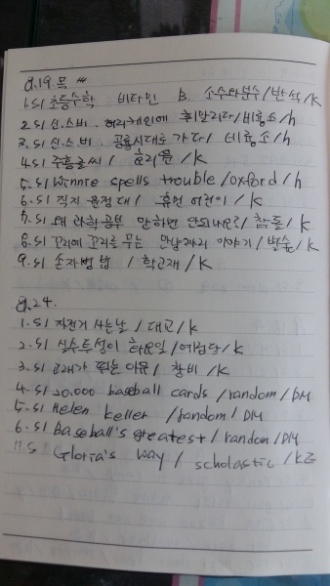 8.19. 목
1. S1 초등수학 비타민 B. 소수와분수/반석/K
2. S1 신.스.비. 허리케인에 휘말리다/비룡소/h
3. S1 신.스.비. 공룡시대로 가다/비룡소/h
4. S1 /K
5. S1 Winnie spells trouble/oxford/h
6. S1 직지 원정대/휴먼 어린이/K
7. S1 왜 과학공부 안하면 안되나요?/참돌/K
8. S1 꼬리에 꼬리를 무는 이야기/ /K
9. S1 손자병법/학고재/K
8.24.
1. S1 자전거 사는날/대교/K
2. S1 실수투성이 /여성/K
3. S1 고래가 /창비/K
4. S1 20,000 baseball cards/random/DM
5. S1 Helen keller/random/DM
6. S1 Baseball's greatest/random/DM
7. S Gloria's way/scholastic/KZ